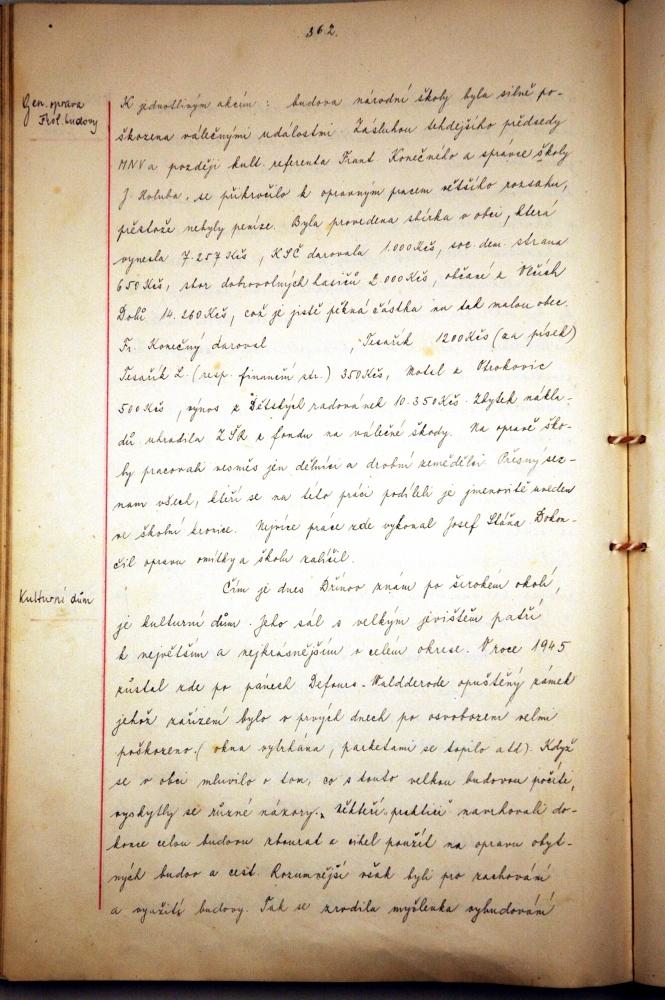 362.
Gen. oprava
škol. budovy
K jednotlivým akcím : budova národní školy byla silně po-
škozena válečnými událostmi. Zásluhou tehdejšího předsedy
MNV a později kult. referenta Frant. Konečného a správce školy
J. Holuba, se přikročilo k opravným pracem většího rozsahu,
přestože nebyly peníze. Byla provedena sbírka v obci, která
vynesla 7.257 Kčs, KSČ darovala 1.000 Kčs, soc. dem. strana
650 Kčs, sbor dobrovolných hasičů 2.000 Kčs, občané z Věžích
Dolů 14.260 Kčs, což je jistě pěkná částka na tak malou obec.
Fr. Konečný daroval , Tesařík 1200 Kčs (za písek)
Tesařík L. (resp. finanční str.) 350 Kčs, Motel z Otrokovic
500 Kčs, výnos z Dětských radovánek 10.350 Kčs. Zbytek nákla-
dů uhradila ZŠR z fondu na válečné škody. Na opravě ško-
ly pracovali vesměs jen dělníci a drobní zemědělci. Přesný sez-
nam všech, kteří se na této práci podíleli je jmenovitě uveden
ve školní kronice. Nejvíce práce zde vykonal Josef Sláňa. Dokon-
čil opravu omítky a školu zalíčil.
Kulturní dům
Čím je dnes Dřínov znám po širokém okolí,
je kulturní dům. Jeho sál s velkým jevištěm patří
k největším a nejkrásnějším v celém okrese. V roce 1945
zůstal zde po pánech Defours-Waldderode opuštěný zámek
jehož zařízení bylo v prvých dnech po osvobození velmi
poškozeno. ( okna vytrhána, parketami se topilo atd). Když
se v obci mluvilo o tom, co s touto velkou budovou počíti,
vyskytly se různé názory. „Někteří praktici" navrhovali do-
konce celou budovu zbourat a cihel použít na opravu obyt-
ných budov a cest. Rozumnější však byli pro zachování
a využití budovy. Tak se zrodila myšlenka vybudování